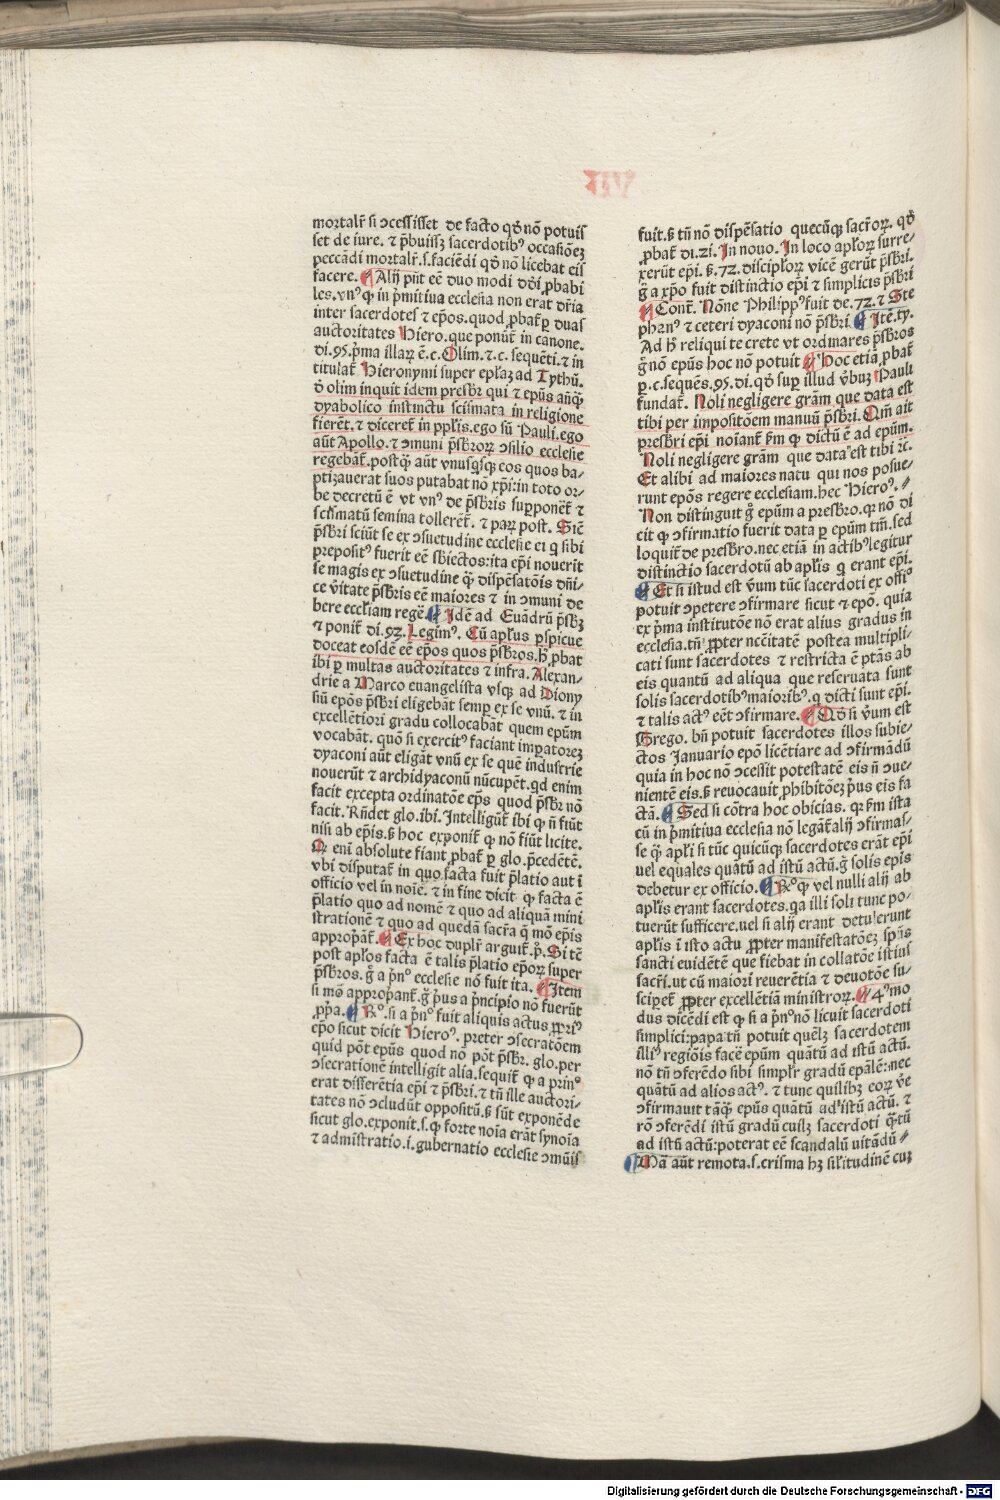 mortalr̃ si ɔcessisset de facto qd̕ nō potuis
set de iure. ⁊ p̄buissꝫ sacerdotibꝰ occasiōeꝫ
peccādi mortalr̃.s.faciēdi qd̕ nō licebat eis
facere. ¶ Alij pn̄t eē duo modi dōi ꝓbabi
les.vnꝰ ꝙ in p̄mitiua ecclesia non erat dr̃ia
inter sacerdotes ⁊ ep̄os.quod ꝓbat̃ ꝑ duas
auctoritates Hiero.que ponūt̃ in canone.
di.95.p̄ma illaꝝ ē.c.Olim.⁊.c. sequēti.⁊ in
titulat̃ Hieronymi super epl̄aꝫ ad Tythū.
ō olim inquit idem presbr̃ qui ⁊ ep̄us añꝙ̄
dyabolico instinctu scismata in religione
fierēt.⁊ diceret̃ in ppl̄is.ego sū Pauli.ego
aūt Apollo.⁊ ɔmuni p̄sbr̃oꝝ ɔsilio ecclesie
regebāt̃.postꝙ̄ aūt vnusq̄sꝙ eos quos ba-
ptizauerat suos putabat nō xp̄i:in toto or-
be decretū ē vt vnꝰ de p̄sbr̃is supponēt̃ ⁊
scismatū semina tollerēt̃. ⁊ paꝝ post. Sic̄
p̄sbr̃i sciūt se ex ɔsuetudine ecclesie ei q̄ sibi
prepositꝰ fuerit eē sb̄iectos:ita ep̄i nouerīt
se magis ex ɔsuetudine ꝙ̄ dispēsatōis dn̄i-
ce v̄itate p̄sbr̃is eē maiores ⁊ in ɔmuni de
bere eccl̄iam regē. ¶ Idē ad Euādrū p̄sbꝫ
⁊ ponit̃ di.92. Legimꝰ. Cū apl̄us ꝑspicue
doceat eosdē eē ep̄os quos p̄sbr̃os.hꝰ ꝓbat
ibi ꝑ multas auctoritates ⁊ infra. Alexan-
drie a Marco euangelista vsꝙ ad Diony
siū ep̄os p̄sbr̃i eligebāt semꝑ ex se vnū. ⁊ in
excellētiori gradu collocabāt quem ep̄um
vocabāt. quō si exercitꝰ faciant imꝑatoreꝫ
dyaconi aūt eligāt vnū ex se quē industrie
nouerūt ⁊ archidyaconū nūcupēt.qd enim
facit excepta ordinatōe ep̄s quod p̄sbr̃ nō
facit. Rn̄det glo.ibi. Intelligūt̃ ibi ꝙ n̄ fiūt
nisi ab ep̄is.s̄ hoc exponit̃ ꝙ nō fiūt licite.
Q̄ enī absolute fiant ꝓbat̃ ꝑ glo.p̄cedētē.
vbi disputat̃ in quo facta fuit p̄latio aut ī
officio vel in noīe. ⁊ in fine dicit ꝙ facta ē
p̄latio quo ad nomē ⁊ quo ad aliquā mini
strationē ⁊ quo ad quedā sacr̄a q̄ mō ep̄is
approp̄āt̃. ¶ Ex hoc duplr̃ arguit̃.p̄. Si tē
post apl̄os facta ē talis p̄latio ep̄oꝝ super
p̄sbr̃os. g̊ a p̄nᵒ ecclesie nō fuit ita. ¶ Item
si mō approp̄ant̃.g̊ p̄us a p̄ncipio nō fuerūt
ꝓp̄a. ¶ Rᵒ.si a p̄nᵒ fuit aliquis actus ꝓpriꝰ
ep̄o sicut dicit Hieroꝰ. preter ɔsecratōem
quid pōt ep̄us quod nō pōt p̄sbr̃. glo.per
ɔsecrationē intelligit alia.sequit̃ ꝙ a prinᵒ
erat differētia ep̄i ⁊ p̄sbr̃i.⁊ tn̄ ille auctori-
tates nō ɔcludūt oppositū.s̄ sūt exponēde
sicut glo.exponit.s.ꝙ forte noīa erāt synoīa
⁊ admīstratio.i.gubernatio ecclesie ɔmūis
VII
fuit.s̄ tn̄ nō dispēsatio quecūꝙ sacr̄oꝝ. qd̕
ꝓbat̃ di.21. In nouo. In loco apl̄oꝝ surre-
xerūt ep̄i. s̄.72.discipl̄oꝝ vicē gerūt p̄sbr̃i.
g̊ a xp̄o fuit distinctio ep̄i ⁊ simplicis p̄sbr̃i
¶ Cont̃. Nōne Philippꝰ fuit de.72.⁊ Ste
phanꝰ ⁊ ceteri dyaconi nō p̄sbr̃i. ¶ Itē.ty.
Ad hͨ reliqui te crete vt ordinares p̄sbr̃os
g̊ nō ep̄us hoc nō potuit ¶ Hoc etiā ꝓbat̃
ꝑ.c.sequēs.95.di.qd̕ suꝑ illud v̄buꝫ Pauli
fundat̃. Noli negligere grām que data est
tibi per impositōem manuū p̄sbr̃i. Qm̄ ait
presbr̃i ep̄i noiant̃ ẜm ꝙ dictū ē ad ep̄um.
Noli negligere grām que data est tibi ⁊c̄.
Et alibi ad maiores natu qui nos posue-
runt ep̄os regere ecclesiam.hec Hieroꝰ.
Non distinguit g̊ ep̄um a presbr̃o.qꝛ nō di
cit ꝙ ɔfirmatio fuerit data ꝑ ep̄um tm̄.sed
loquit̃ de presbr̃o.nec etiā in actibꝰ legitur
distinctio sacerdotū ab apl̄is q̄ erant ep̄i.
¶ Et si istud est v̄um tūc sacerdoti ex offiᵒ
potuit ɔpetere ɔfirmare sicut ⁊ ep̄o. quia
ex p̄ma institutōe nō erat alius gradus in
ecclesia.tn̄ ꝓpter nc̄citatē postea multipli-
cati sunt sacerdotes ⁊ restricta ē ptās ab
eis quantū ad aliqua que reseruata sunt
solis sacerdotibꝰ maioribꝰ.q̄ dicti sunt ep̄i.
⁊ talis actꝰ eēt ɔfirmare. ¶ Qd̕ si v̄um est
Grego. bn̄ potuit sacerdotes illos subie-
ctos Januario ep̄o licētiare ad ɔfirmādū
quia in hoc nō ɔcessit potestatē eis n̄ ɔue-
nientē eis.s̄ reuocauit ꝓhibitōeꝫ p̄us eis fa
ctā. ¶ Sed si cōtra hoc obicias. qꝛ ẜm ista
cū in p̄mitiua ecclesia nō legāt̃ alij ɔfirmas-
se ꝙ̄ apl̄i si tūc quicūꝙ sacerdotes erāt ep̄i
uel equales quātū ad istū actū.g̊ solis ep̄is
debetur ex officio. ¶ Rᵒ ꝙ vel nulli alij ab
apl̄is erant sacerdotes.qa illi soli tunc po-
tuerūt sufficere.uel si alij erant detulerunt
apl̄is ī isto actu ꝓpter manifestatōeꝫ sp̄us
sancti euidētē que fiebat in collatōe istius
sacr̄i.ut cū maiori reuerētia ⁊ deuotōe su-
sciꝑet̃ ꝓpter excellētiā ministroꝝ. ¶ 4ꝰ mo
dus dicēdi est ꝙ si a p̄nᵒ nō licuit sacerdoti
simplici:papa tn̄ potuit quēlꝫ sacerdotem
illiꝰ regiōis facē ep̄um quātū ad istū actū.
nō tn̄ ɔferēdo sibi simplr̃ gradū ep̄alē:nec
quātū ad alios actꝰ. ⁊ tunc quilibꝫ eoꝝ v̄e
ɔfirmauit tāꝙ̄ ep̄us quātū ad istū actū. ⁊
rō ɔferēdi istū gradū cuilꝫ sacerdoti q̄tū
ad istū actū:poterat eē scandalū uitādū
¶ Mā aūt remota.s.crisma hꝫ sil̄itudinē cuꝫ
Digitalisierung gefördert durch die Deutsche Forschungsgemeinschaft - DFG